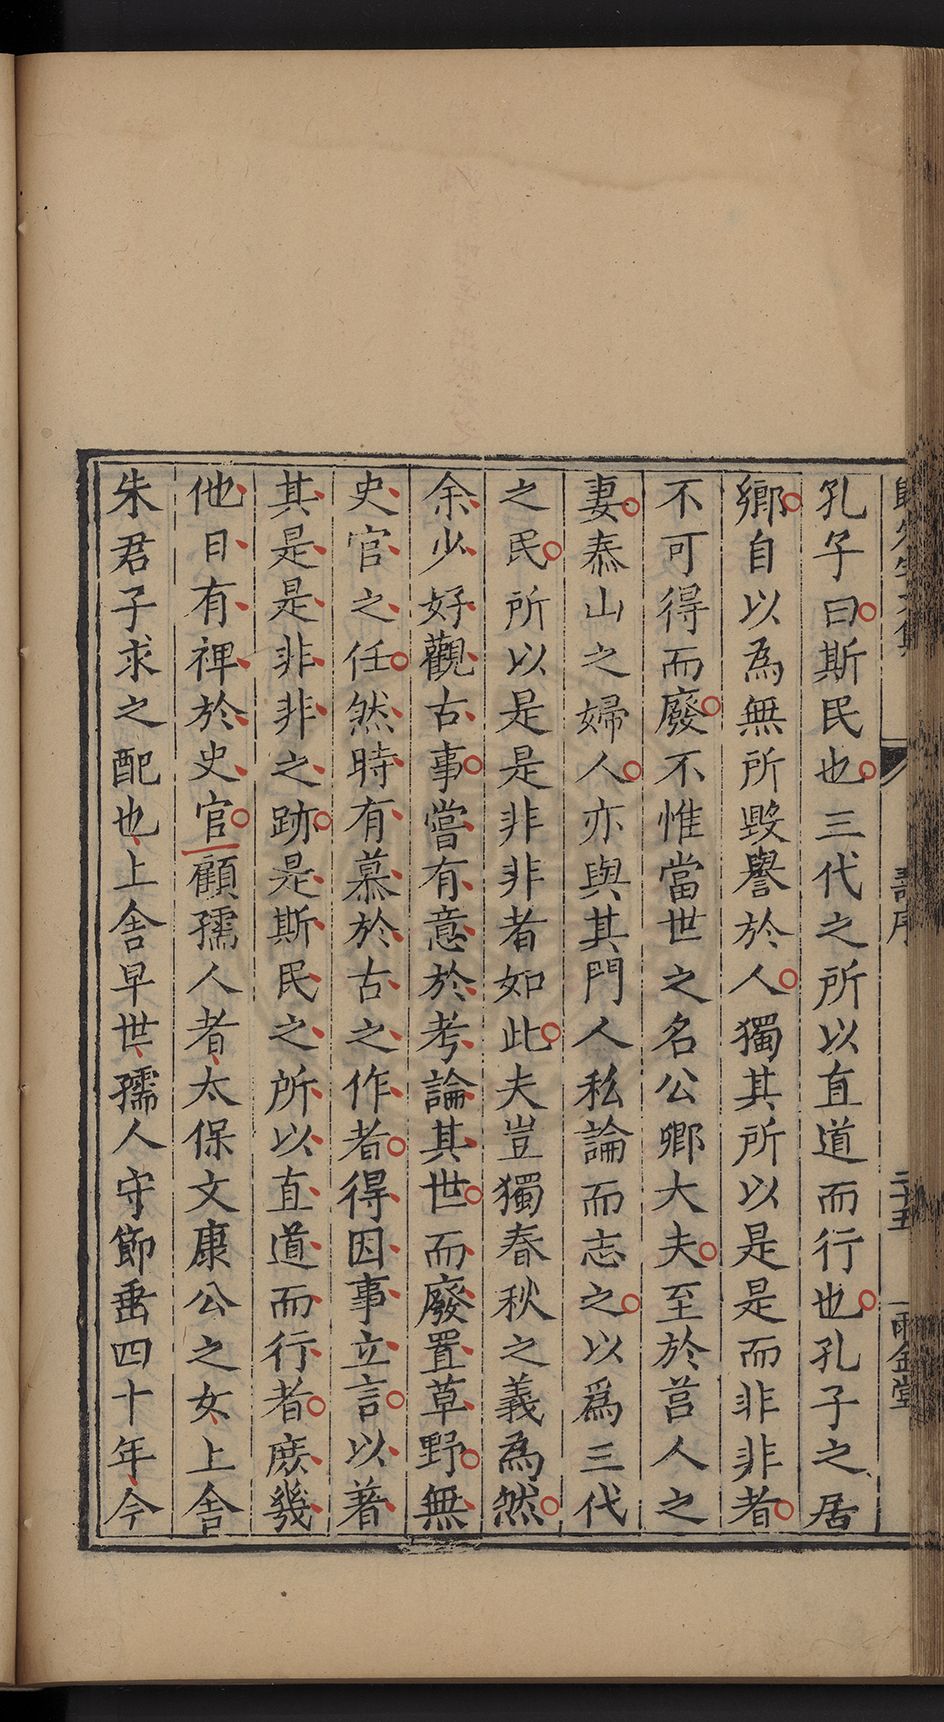 孔子曰斯民也三代之所以直道而行也孔子之居
鄉自以為無所毀譽於人獨其所以是是而非非者
不可得而廢不惟當世之名公卿大夫至於莒人之
妻泰山之婦人亦與其門人私論而志之以爲三代
之民所以是是非非者如此夫豈獨春秋之義為然
余少好觀古事嘗有意於考論其世而廢置草野無
史官之任然時有慕於古之作者得因事立言以著
其是是非非之跡是斯民之所以直道而行者庶幾
他日有裨於史官顧孺人者太保文康公之女上舍
朱君子求之配也上舍早世孺人守節垂四十年今